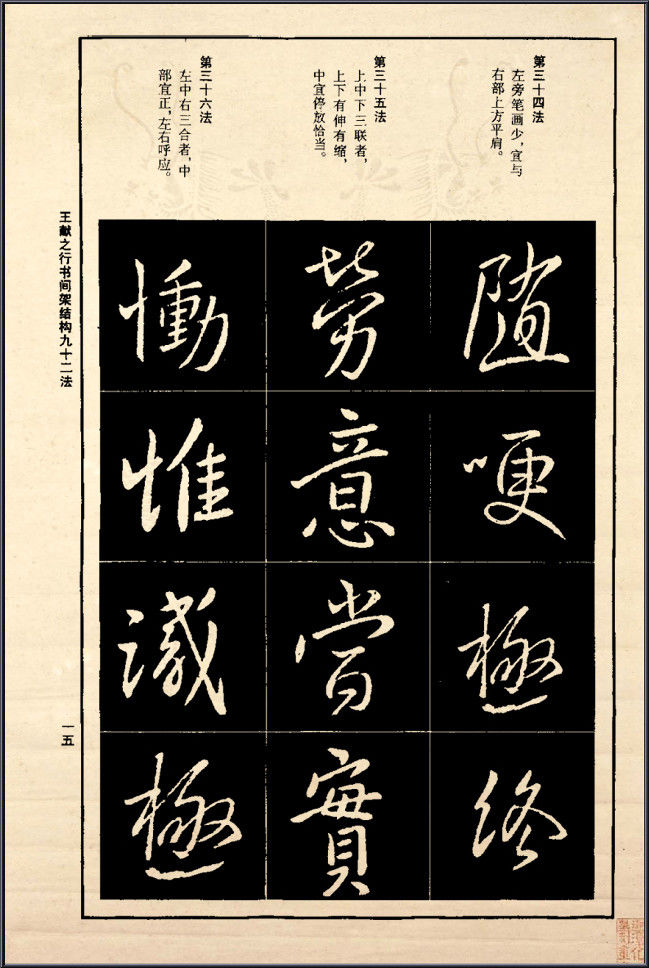 第三十四法
左旁笔画少，宜与
右部上方平肩。
第三十五法
上中下三联者，
上下有伸有缩，
中宜停放恰当。
第三十六法
左中右三合者，中
部宜正，左右呼应。
随
哽
極
终
勞
意
當
實
慟
惟
識
極
王献之行书间架结构九十二法
一五